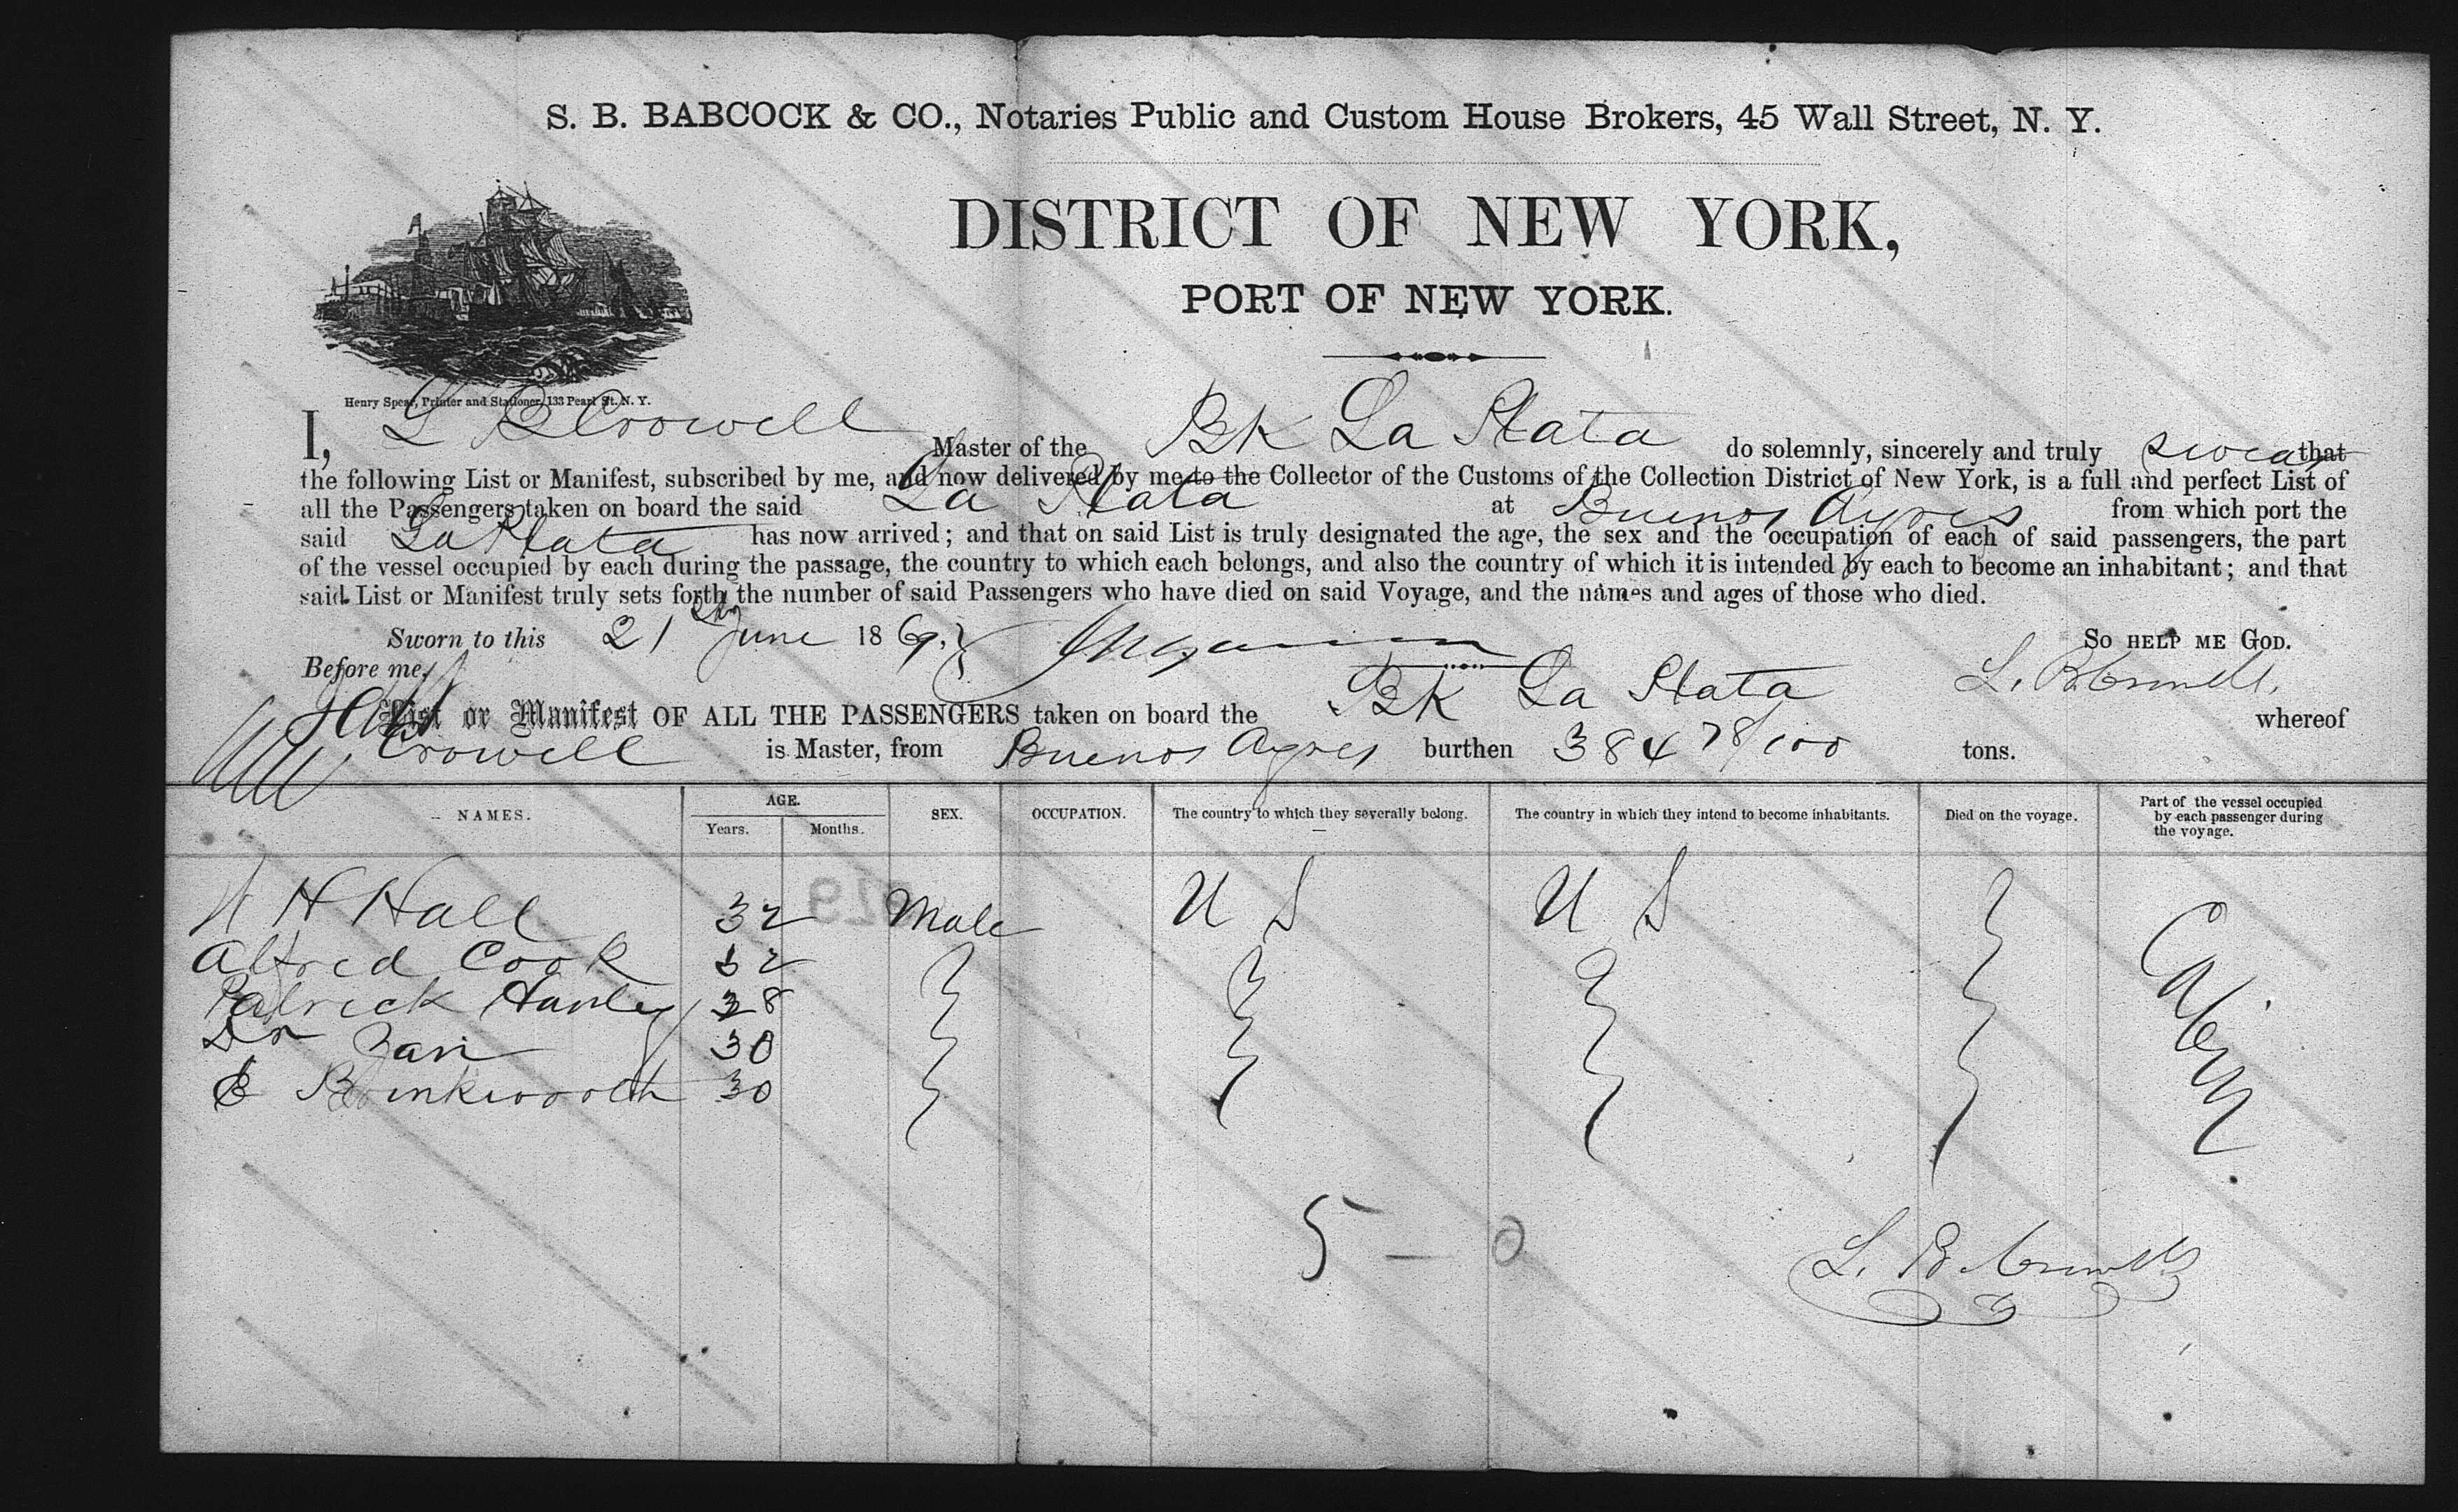 S. B. BABCOCK & CO., Notaries Public and Custom House Brokers, 45 Wall Street, N. Y.
DISTRICT OF NEW YORK,
PORT OF NEW YORK.
Henry Spear, Printer and Stationer, 133 Pearl St. N. Y.
I, L B Crowell Master of the Bk La Plata do solemnly, sincerely and truly swear that
the following List or Manifest, subscribed by me, and now delivered by me to the Collector of the Customs of the Collection District of New York, is a full and perfect List of
all the Passengers taken on board the said La Plata at Buenos Ayres from which port the
said La Plata has now arrived; and that on said List is truly designated the age, the sex and the occupation of each of said passengers, the part
of the vessel occupied by each during the passage, the country to which each belongs, and also the country of which it is intended by each to become an inhabitant; and that
said List or Manifest truly sets forth the number of said Passengers who have died on said Voyage, and the names and ages of those who died.
Sworn to this 21st June 1869. So HELP ME GOD.
Before me, L. B. Crowell.
List or Manifest OF ALL THE PASSENGERS taken on board the Bk La Plata whereof
Crowell is Master, from Buenos Ayres burthen 384 78/100 tons.
NAMES. AGE. Years. Months. SEX. OCCUPATION. The country to which they severally belong. The country in which they intend to become inhabitants. Died on the voyage. Part of the vessel occupied by each passenger during the voyage.
H Hall 32 Male U S U S Cabin
Alfred Cook 32
Patrick Hanley 28
Dr 30
Brinkworth 30
5 —
L. B. Crowell